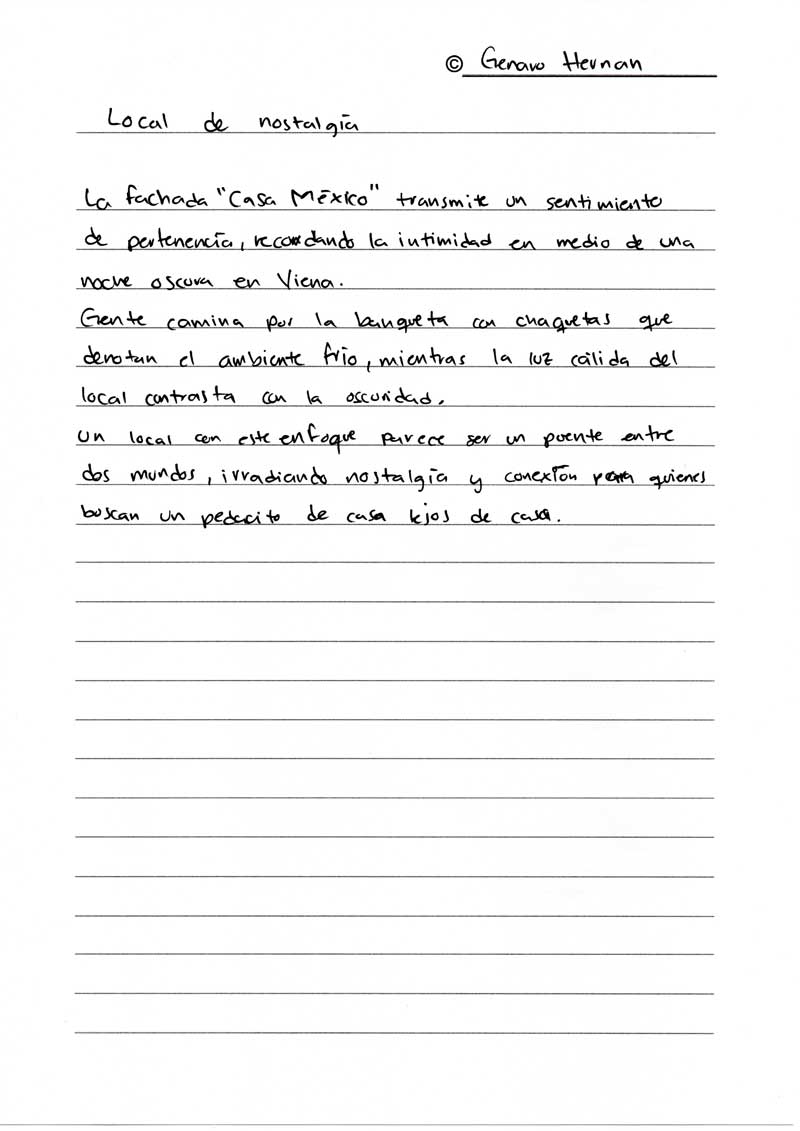 © Genaro Hernan
Local de nostalgía
La fachada "Casa México" transmite un sentimiento
de pertenencía, recordando la intimidad en medio de una
noche oscura en Viena.
Gente camina por la banqueta con chaquetas que
denotan el ambiente frío, mientras la luz cálida del
local contrasta con la oscuridad.
Un local con este enfoque parece ser un puente entre
dos mundos, irradiando nostalgía y conexíón para quienes
buscan un pedacito de casa lejos de casa.